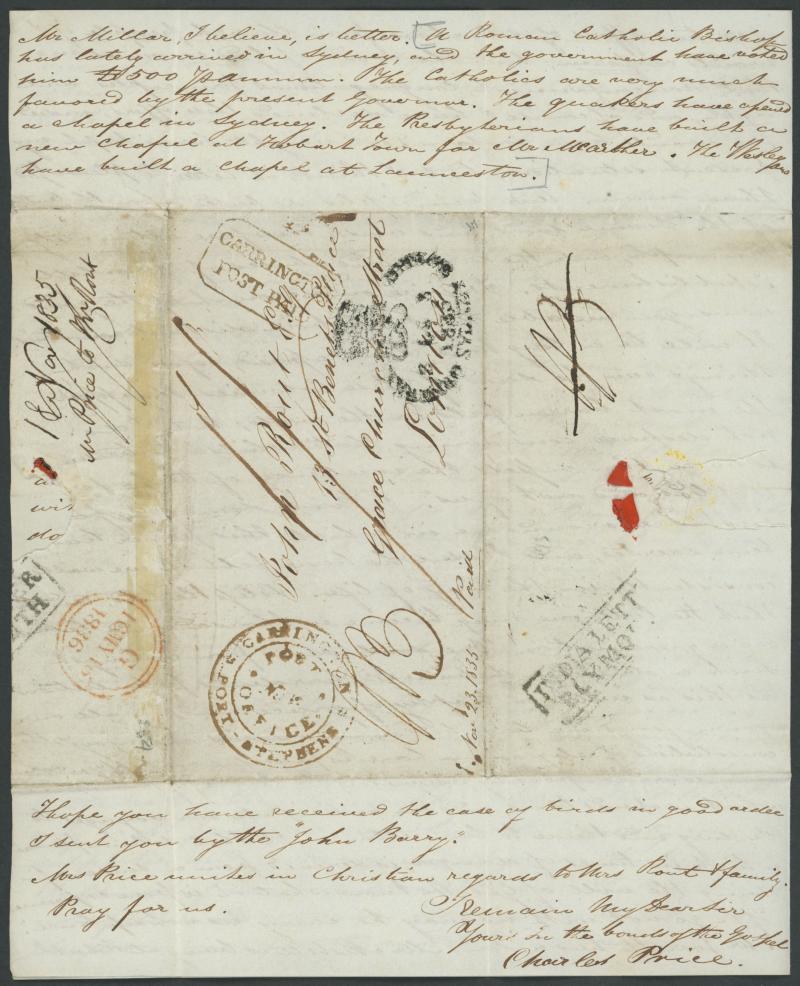 Mr Millar, I believe, is better. [A Roman Catholic Bishop
has lately arrived in Sydney, and the government have voted
him £500 P annum. The Catholics are very much
favored by the present Governor. The quakers have opened
a chapel in Sydney. The Presbyterians have built a
new chapel at Hobart Town for Mr McArther. The Wesleyans
have built a chapel at Launceston.]
18 Nov 1835
Mr Price to Mr Rout
do
G
16 MY 16
1836
CARRINGTON
POST PAI
John Rout Esq
13 St Benets Place
Grace Church Street
London
Paid
Nov 23. 1835
PORT STEPHENS CARRINGTON
POST
OFFICE
SYDNEY
INDIA LETT
PLYMOU
I hope you have received the case of birds in good order
I sent you by the "John Barry".
Mrs Price unites in Christian regards to Mrs Rout & family.
Pray for us.
I Remain My Dear Sir
Yours in the bonds of the Gospel
Charles Price.